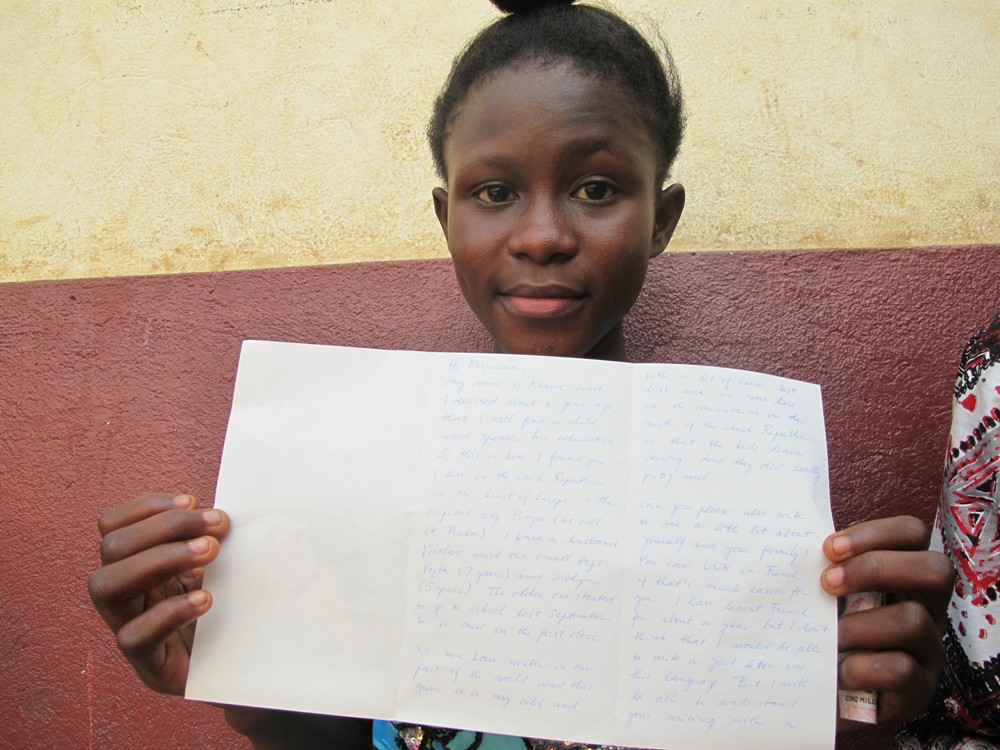 Hi Mariama,
my name is Klara and
I decided about a year ago
that I will find a child
and sponsor his education
& this is how I found you!
I live in the Czech Republic
in the heart of Europe in the
capital city Prague (we call
it Praha). I have a husband
Vaclav and two small boys
Vojta (7 years) and
(5 years). The older one started
to go to school last September.
So is now in the first class.
We now have winter in our
part of the world and this
year it is very cold and
with a lot of snow. Last
week we were here
in the mountains in the
north of the Czech Republic,
so that the kids learn
skiing. And they did really
pretty well.
Can you please also write
to me a little bit about
yourself and your family?
You can write in French
if that's much easier for
you. I have learnt French
for about a year but I don't
think that I would be able
to write a good letter in
this language. But I will
be able to understand
your writing with a
CINQ MILL